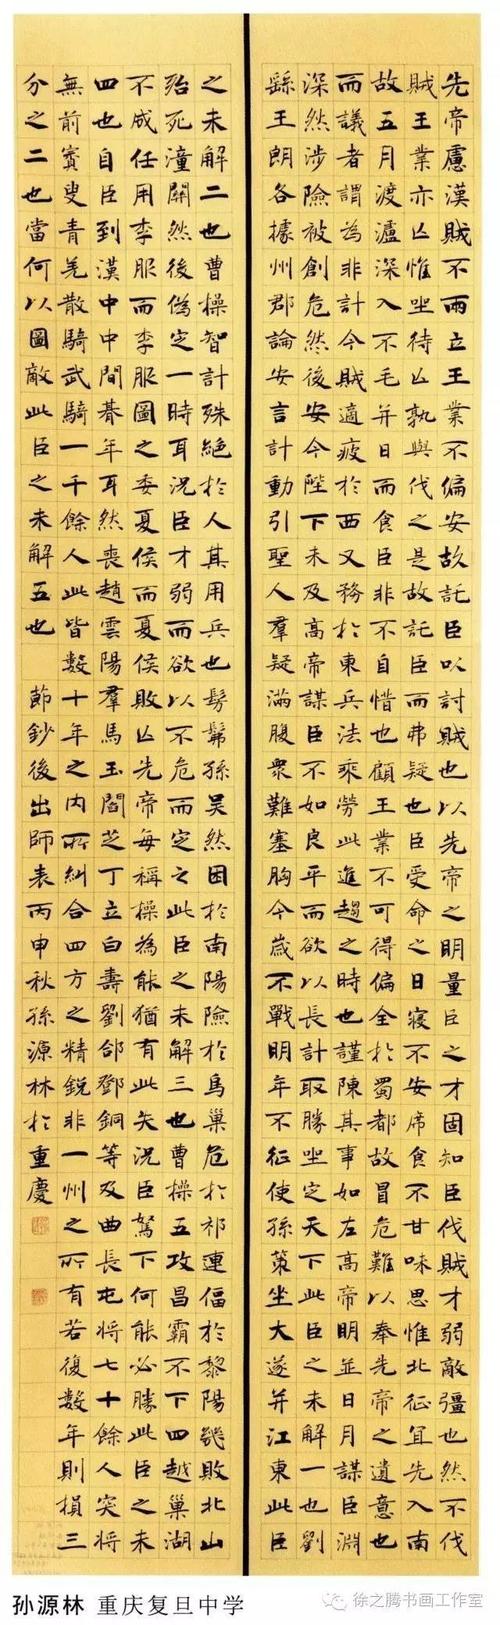 先帝慮漢賊不兩立王業不偏安故託臣以討賊也以先帝之明量臣之才固知臣伐賊才弱敵彊也然不伐
賊王業亦亡惟坐待亡孰與伐之是故託臣而弗疑也臣受命之日寢不安席食不甘味思惟北征宜先入南
故五月渡瀘深入不毛并日而食臣非不自惜也顧王業不可得偏全於蜀都故冒危難以奉先帝之遺意也
而議者謂為非計今賊適疲於西又務於東兵法乘勞此進趨之時也謹陳其事如左高帝明並日月謀臣淵
深然涉險被創危然後安今陛下未及高帝謀臣不如良平而欲以長計取勝坐定天下此臣之未解一也劉
繇王朗各據州郡論安言計動引聖人羣疑滿腹眾難塞胸今歲不戰明年不征使孫策坐大遂并江東此臣
之未解二也曹操智計殊絕於人其用兵也髣髴孫吳然困於南陽險於烏巢危於祁連偪於黎陽幾敗北山
殆死潼關然後偽定一時耳況臣才弱而欲以不危而定之此臣之未解三也曹操五攻昌霸不下四越巢湖
不成任用李服而李服圖之委夏侯而夏侯敗亡先帝每稱操為能猶有此失況臣駑下何能必勝此臣之未
四也自臣到漢中中間朞年耳然喪趙雲陽羣馬玉閻芝丁立白壽劉郃鄧銅等及曲長屯將七十餘人突將
無前賨叟青羌散騎武騎一千餘人此皆數十年之內所糾合四方之精銳非一州之所有若復數年則損三
分之二也當何以圖敵此臣之未解五也 節鈔後出師表丙申秋孫源林於重慶
孙源林 重庆复旦中学
徐之腾书画工作室